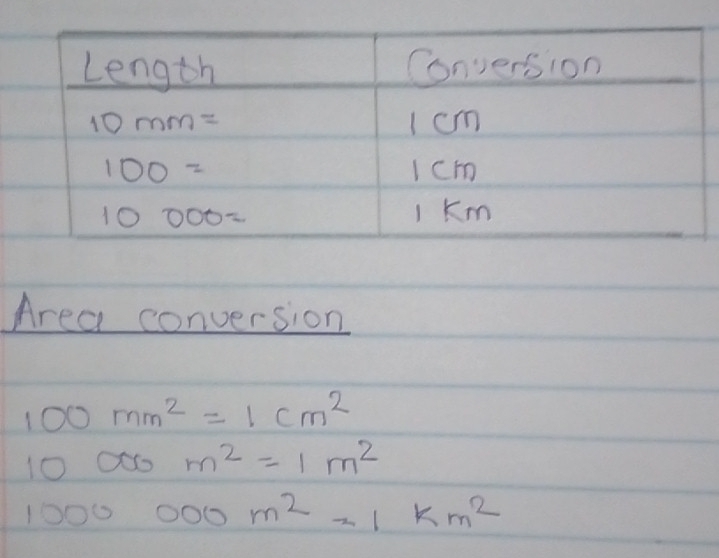 Length Conversion
10 mm= 1 cm
100 = 1 cm
10 000= 1 Km
Area conversion
100 mm² = 1 cm²
10 000 m² = 1 m²
1000 000 m² = 1 Km²